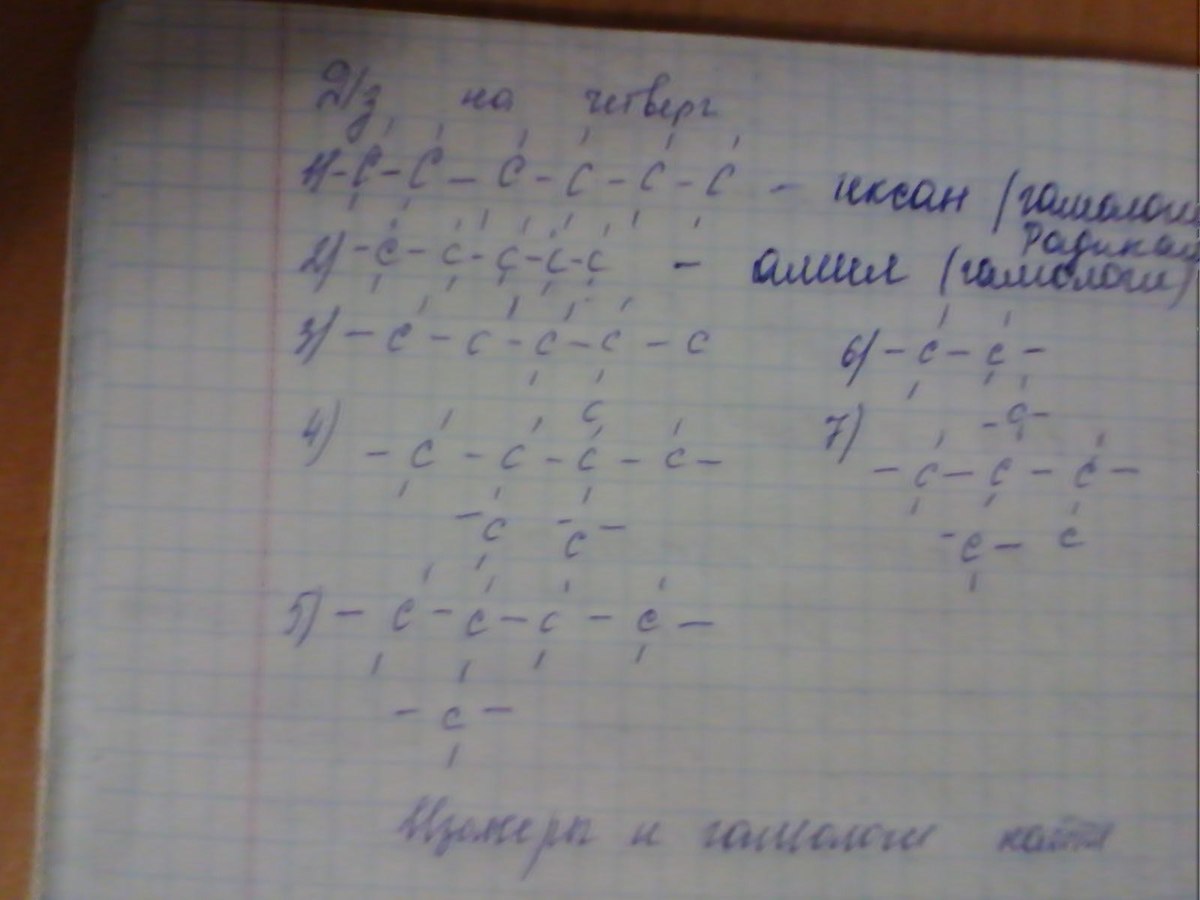 Д/з на четверг
1) -С-С-С-С-С-С - иксан (гамологи
Радикал
2) -С-С-С-С-С - амил (гамологи)
3) -С-С-С-С-С
6) -С-С-
4) С
-С-С-С-С-
-С -С-
7) -С-
-С-С-С-
-С- С
5) -С-С-С-С-
-С-
Изомеры и гамологи найти